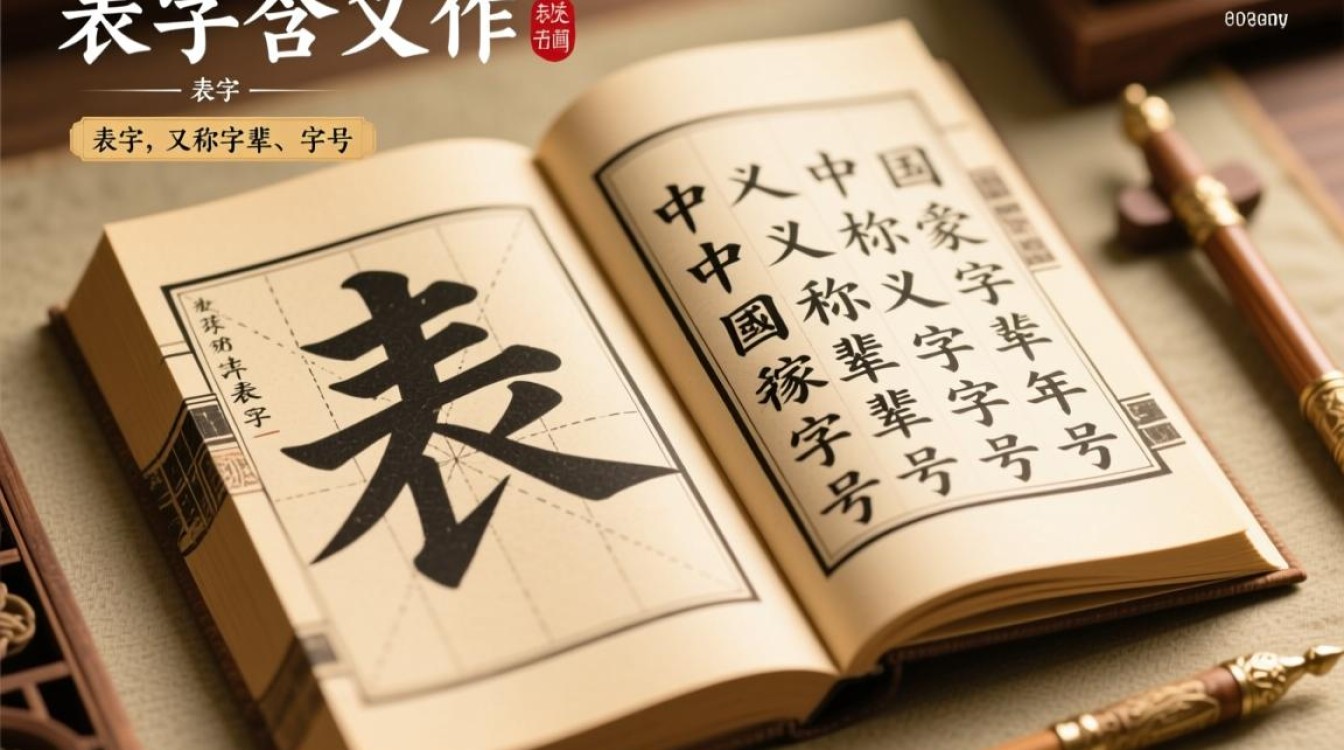 表字含义作
表字
表字，又称字辈、字号
表
表字
中义中国
中义称
國称义字
稼辈字辈
字辈字年
号号号号